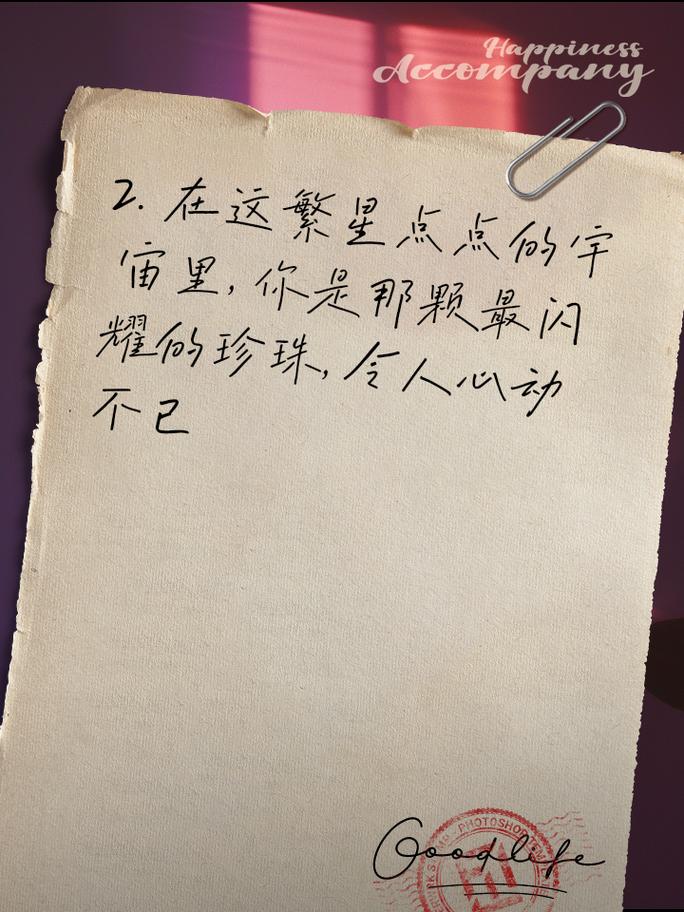 Happiness
Accompany
2. 在这繁星点点的宇
宙里,你是那颗最闪
耀的珍珠,令人心动
不已
Goodlife